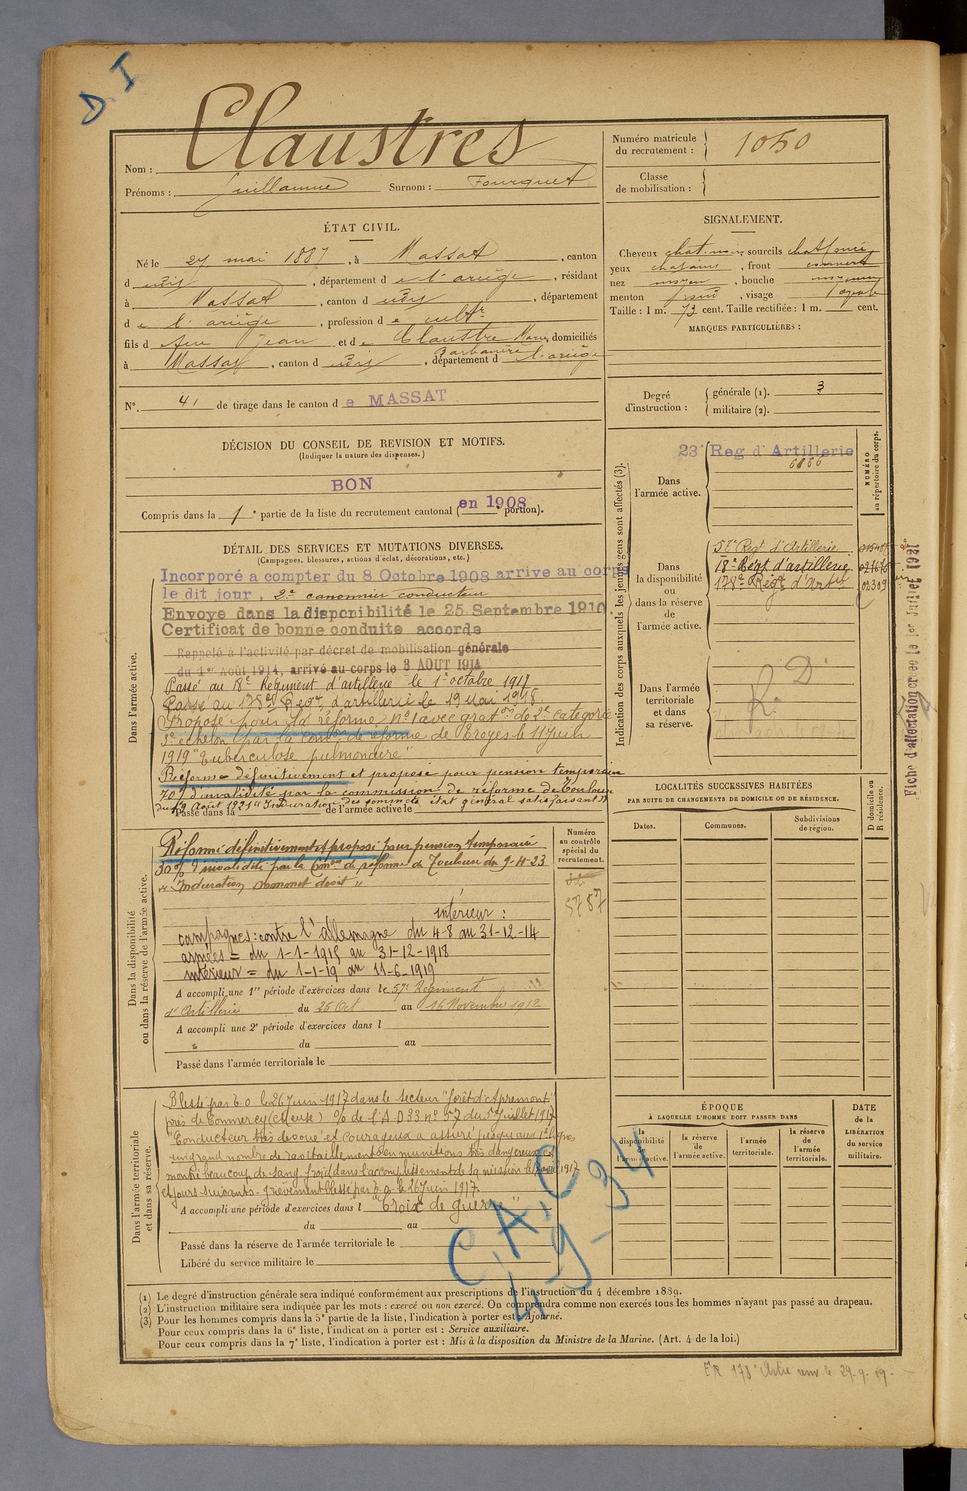 D. I
Nom : Claustres
Prénoms : Guillaume Surnom : Fourquet
Numéro matricule
du recrutement : 1050
Classe
de mobilisation :
ÉTAT CIVIL.
Né le 27 mai 1887, à Massat, canton
d udit, département de l'ariège, résidant
à Massat, canton d udit, département
de l'ariège, profession de cultr
fils de feu Jean et de Claustre Marie, domiciliés
Barbanère
à Massat, canton d udit, département de l'ariège
N°. 41 de tirage dans le canton de MASSAT
SIGNALEMENT.
Cheveux chat. sourcils chat foncé
yeux chatains, front couvert
nez moyen, bouche moyenne
menton rond, visage ovale
Taille : 1 m. 73 cent. Taille rectifiée : 1 m. cent.
MARQUES PARTICULIÈRES :
Degré
d'instruction :
générale (1). 3
militaire (2).
DÉCISION DU CONSEIL DE REVISION ET MOTIFS.
(Indiquer la nature des dispenses.)
BON
en 1908
Compris dans la 1e partie de la liste du recrutement cantonal ( portion).
DÉTAIL DES SERVICES ET MUTATIONS DIVERSES.
(Campagnes, blessures, actions d'éclat, décorations, etc.)
Dans l'armée active.
Incorporé a compter du 8 Octobre 1908 arrive au corps
le dit jour, 2e canonnier conducteur
Envoye dans la disponibilité le 25 Septembre 1910.
Certificat de bonne conduite accorde
Rappelé à l'activité par décret de mobilisation générale
du 1er Août 1914, arrivé au corps le 3 AOUT 1914
Passé au 18e Régiment d'artillerie le 1er octobre 1917
Passé au 178e Regt d'artillerie le 19 Mai 1918
Proposé pour la réforme n°1 avec graton de 2e catégorie
3e échelon par la Comon de réforme de Troyes le 11 Juin
1919 "Tuberculose pulmonaire"
Réformé définitivement et proposé pour pension temporaire
70% d'invalidité par la commission de réforme de Toulouse
du 9 Août 1921 "Induration des sommets, état général satisfaisant"
Passé dans la de l'armée active le
Dans la disponibilité
ou dans la réserve de l'armée active.
Réformé définitivement et proposé pour pension temporaire
30% d'invalidité par la Cmon de réforme de Toulouse du 9-4-23
"Induration sommet droit"
intérieur :
campagnes : contre l'allemagne du 4-8 au 31-12-14
armées = du 1-1-1915 au 31-12-1918
intérieur = du 1-1-19 au 11-6-1919
A accompli une 1re période d'exercices dans le 57e Régiment
d'Artillerie du 26 Oct au 16 Novembre 1912
A accompli une 2e période d'exercices dans l
du au
Passé dans l'armée territoriale le
Numéro
au contrôle
spécial du
recrutement.
5787
Dans l'armée territoriale
et dans sa réserve.
Blessé par E. O. le 26 Juin 1917 dans le secteur "forêt d'Apremont"
près de Commercy (Meuse) % de l'A D 33 n° 57 du 5 Juillet 1917
"Conducteur très dévoué et courageux a assuré jusqu'aux 1e lignes
un grand nombre de ravitaillements en munitions très dangereux, a
montré beaucoup de sang froid dans l'accomplissement de sa mission le 1917
et jours suivants - grièvement blessé par e. o. le 26 Juin 1917.
A accompli une période d'exercices dans l "Croix de guerre"
du au
Passé dans la réserve de l'armée territoriale le
Libéré du service militaire le
C.A.C
4-9-34
Indication des corps auxquels les jeunes gens sont affectés (3).
NUMÉRO
au répertoire du corps.
Dans
l'armée active.
23e Reg d'Artillerie
Dans
la disponibilité
ou
dans la réserve
de
l'armée active.
57e Regt d'Artillerie
18e Régt d'artillerie
178e Régt d'Artie
02309
Dans l'armée
territoriale
et dans
sa réserve.
R. D
Fiche d'affectation créée le 1er Juillet 1921
LOCALITÉS SUCCESSIVES HABITÉES
PAR SUITE DE CHANGEMENTS DE DOMICILE OU DE RÉSIDENCE.
Dates.
Communes.
Subdivisions
de région.
D domicile ou
R résidence.
ÉPOQUE
À LAQUELLE L'HOMME DOIT PASSER DANS
la
disponibilité
de
l'armée active.
la réserve
de
l'armée active.
l'armée
territoriale.
la réserve
de
l'armée
territoriale.
DATE
de la
LIBÉRATION
du service
militaire.
(1) Le degré d'instruction générale sera indiqué conformément aux prescriptions de l'instruction du 4 décembre 1889.
(2) L'instruction militaire sera indiquée par les mots : exercé ou non exercé. On comprendra comme non exercés tous les hommes n'ayant pas passé au drapeau.
(3) Pour les hommes compris dans la 5e partie de la liste, l'indication à porter est : Ajourné.
Pour ceux compris dans la 6e liste, l'indication à porter est : Service auxiliaire.
Pour ceux compris dans la 7e liste, l'indication à porter est : Mis à la disposition du Ministre de la Marine. (Art. 4 de la loi.)
178e Artie 29-9-19